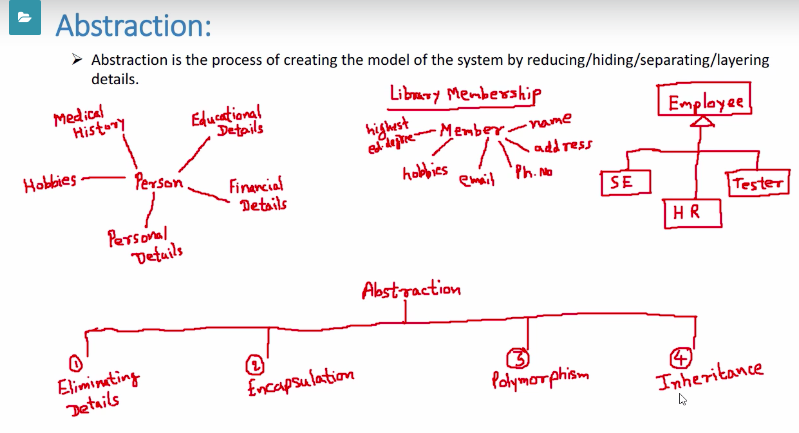 Abstraction:
➤ Abstraction is the process of creating the model of the system by reducing/hiding/separating/layering
details.
Medical
History
Educational
Details
Hobbies
Person
Financial
Details
Personal
Details
Library Membership
highest
ed. degree
Member
name
address
hobbies
email
Ph. No
Employee
SE
HR
Tester
Abstraction
1
Eliminating
Details
2
Encapsulation
3
Polymorphism
4
Inheritance